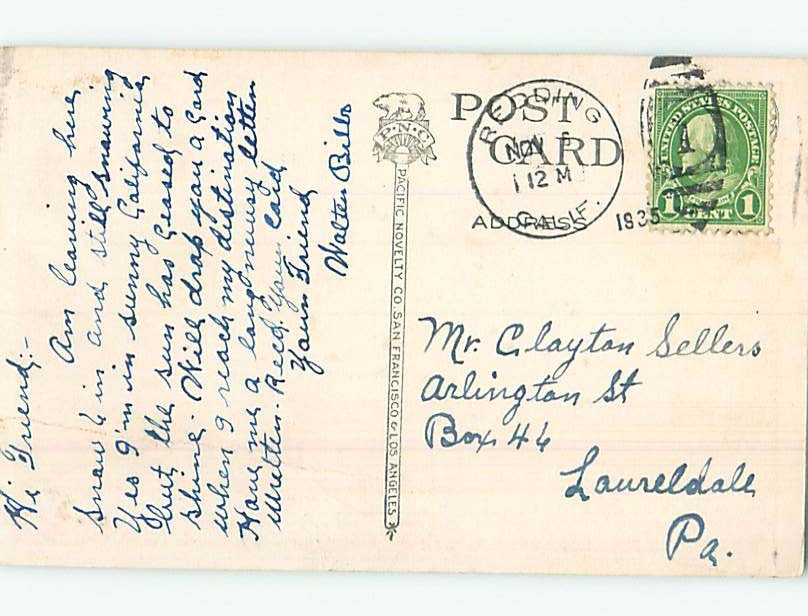 Hi Friend:-
Am leaving here
snow 6 in and still snowing
Yes I'm in sunny California
but the sun has ceased to
shine. Will drop you a card
when I reach my destination
Have me a long newsy letter
written. Recd. Your Card
Your Friend
Walter Bills
P.N.C.
PACIFIC NOVELTY CO. SAN FRANCISCO & LOS ANGELES
POST CARD
ADDRESS
REDDING
NOV 5
12 M
CALIF.
1935
UNITED STATES POSTAGE
1 CENT 1
Mr. Clayton Sellers
Arlington St
Box 46
Laureldale
Pa.